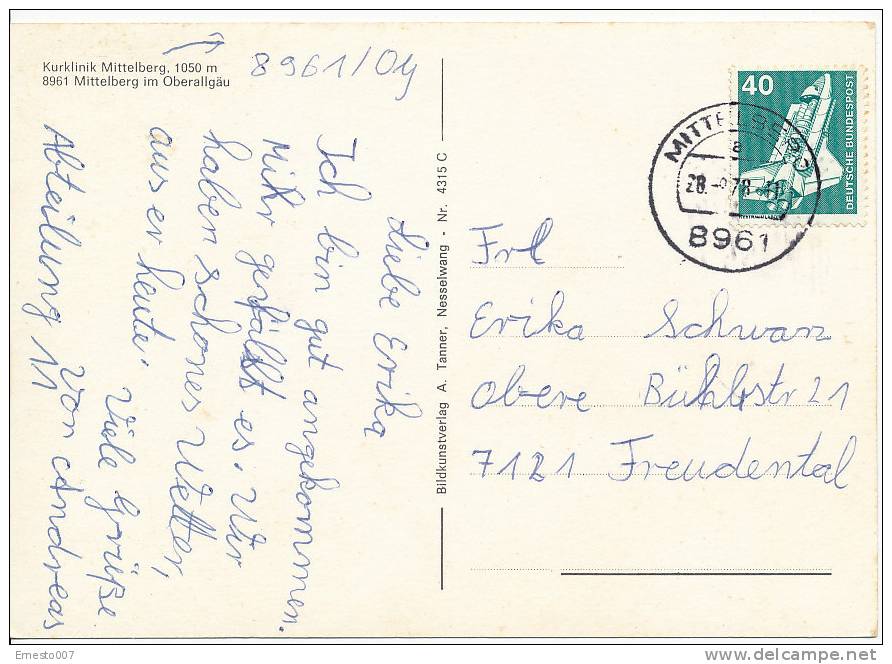 Kurklinik Mittelberg, 1050 m
8961 Mittelberg im Oberallgäu
8961/Oy
Liebe Erika
Ich bin gut angekommen.
Mihr gefällt es. Wir
haben schönes Wetter,
aus er heute. Viele Grüße
von Andreas
Abteilung 11
Bildkunstverlag A. Tanner, Nesselwang - Nr. 4315 C
40
DEUTSCHE BUNDESPOST
MITTELBERG
a
8961
Frl
Erika Schwarz
Obere Bühlstr 21
7121 Freudental
Ernesto007
delcampe.net